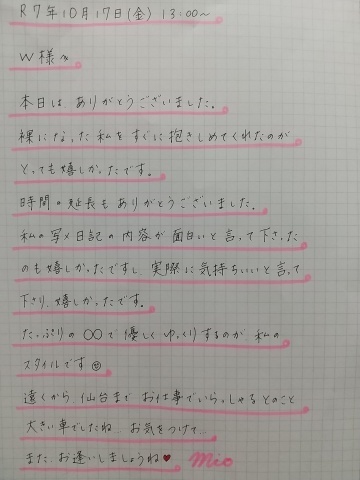 R7年10月17日(金) 13:00～
W様へ
本日は ありがとうございました。
裸になった私をすぐに抱きしめてくれたのが
とっても嬉しかったです。
時間の延長もありがとうございました。
私の写メ日記の内容が面白いと言って下さった
のも嬉しかったですし、実際に気持ちいいと言って
下さり、嬉しかったです。
たっぷりの〇〇で優しくゆっくりするのが 私の
スタイルです☺
遠くから 仙台まで お仕事でいらっしゃるとのこと
大きい車でしたね…お気をつけて…
また お逢いしましょうね♥ Mio